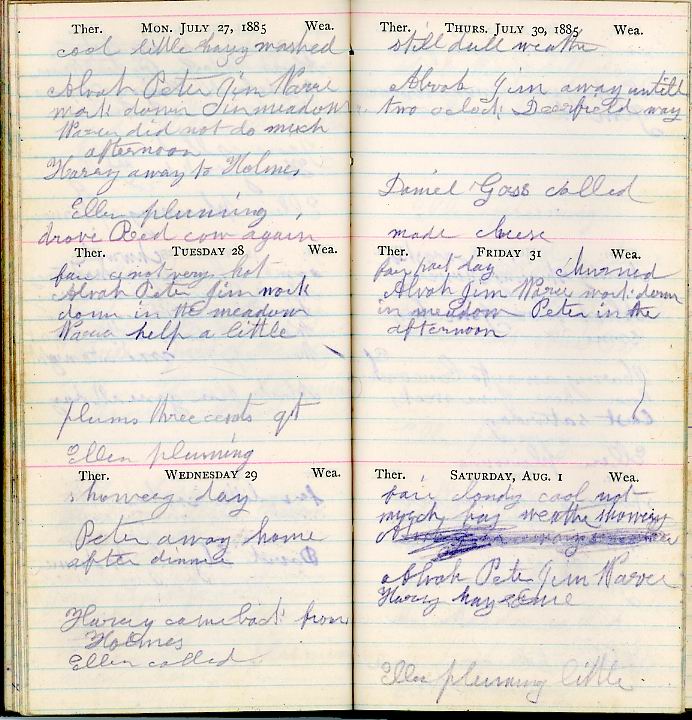 Ther. MON. JULY 27, 1885 Wea.
cool little hazy washed
Alvah Peter Jim Warre
work down in meadow
Warre did not do much
afternoon
Harry away to Holmes
Ellen pluming
drove Red cow again
Ther. TUESDAY 28 Wea.
fair not very hot
Alvah Peter Jim work
down in the meadow
Warre help a little
plums three cents qt
Ellen pluming
Ther. WEDNESDAY 29 Wea.
showery day
Peter away home
after dinner
Harry came back from
Holmes
Ellen called
Ther. THURS. JULY 30, 1885 Wea.
still dull weathe
Alvah Jim away untill
two oclock Deerfield way
Daniel Goss called
made cheese
Ther. FRIDAY 31 Wea.
fair part day churned
Alvah Jim Warre work down
in meadow Peter in the
afternoon
Ther. SATURDAY, AUG. 1 Wea.
fair cloudy cool not
mych hay weathe showery
Alvah Peter Jim Warre
Harry hay some
Ellen pluming little